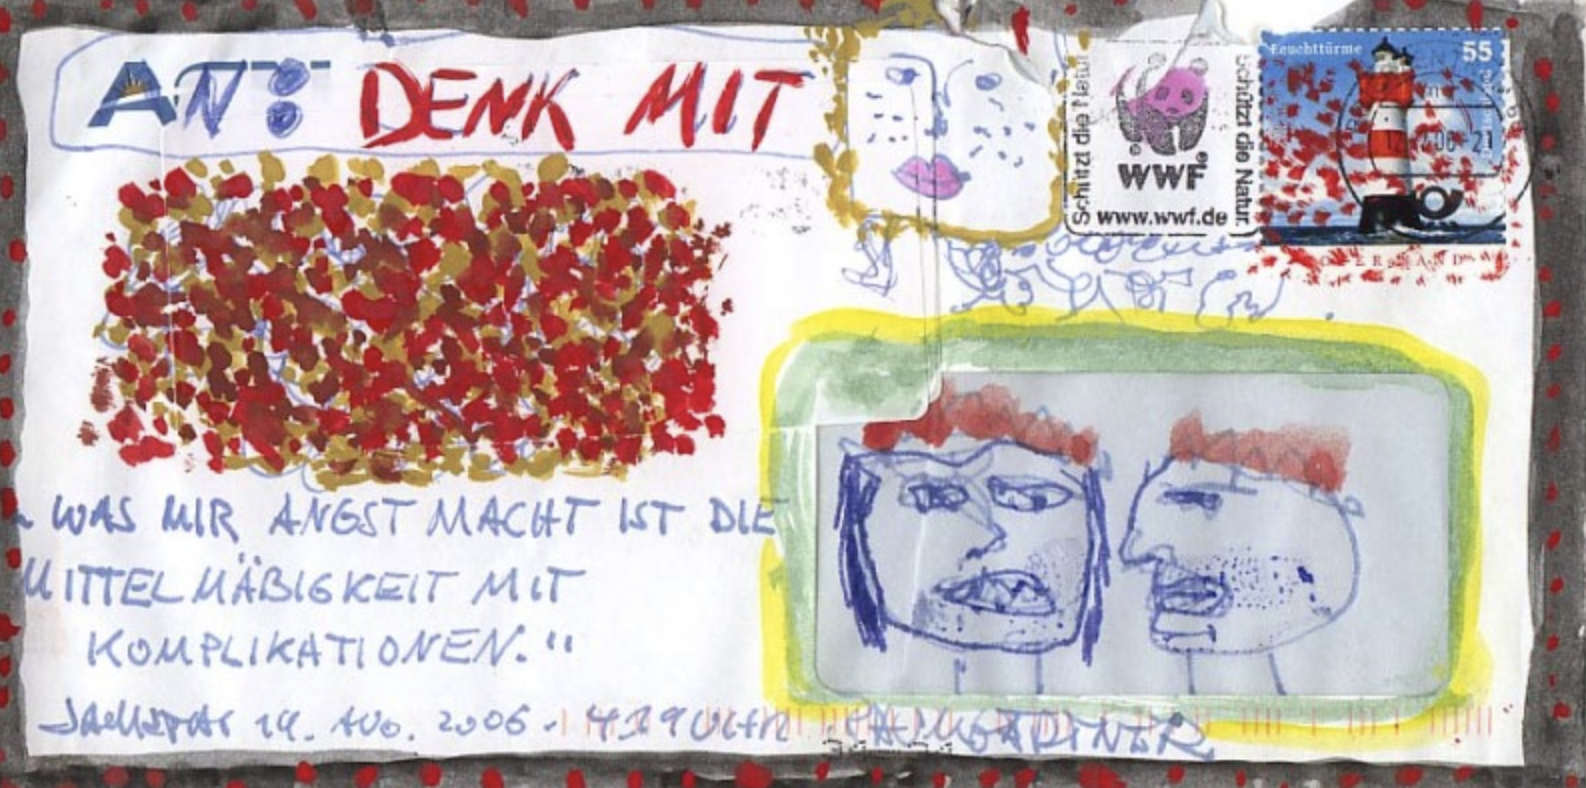 AN: DENK MIT
Schützt die Natur
WWF®
www.wwf.de
Schützt die Natur.
Leuchttürme 55
„WAS MIR ANGST MACHT IST DIE
MITTELMÄßIGKEIT MIT
KOMPLIKATIONEN."
AUG. 2006